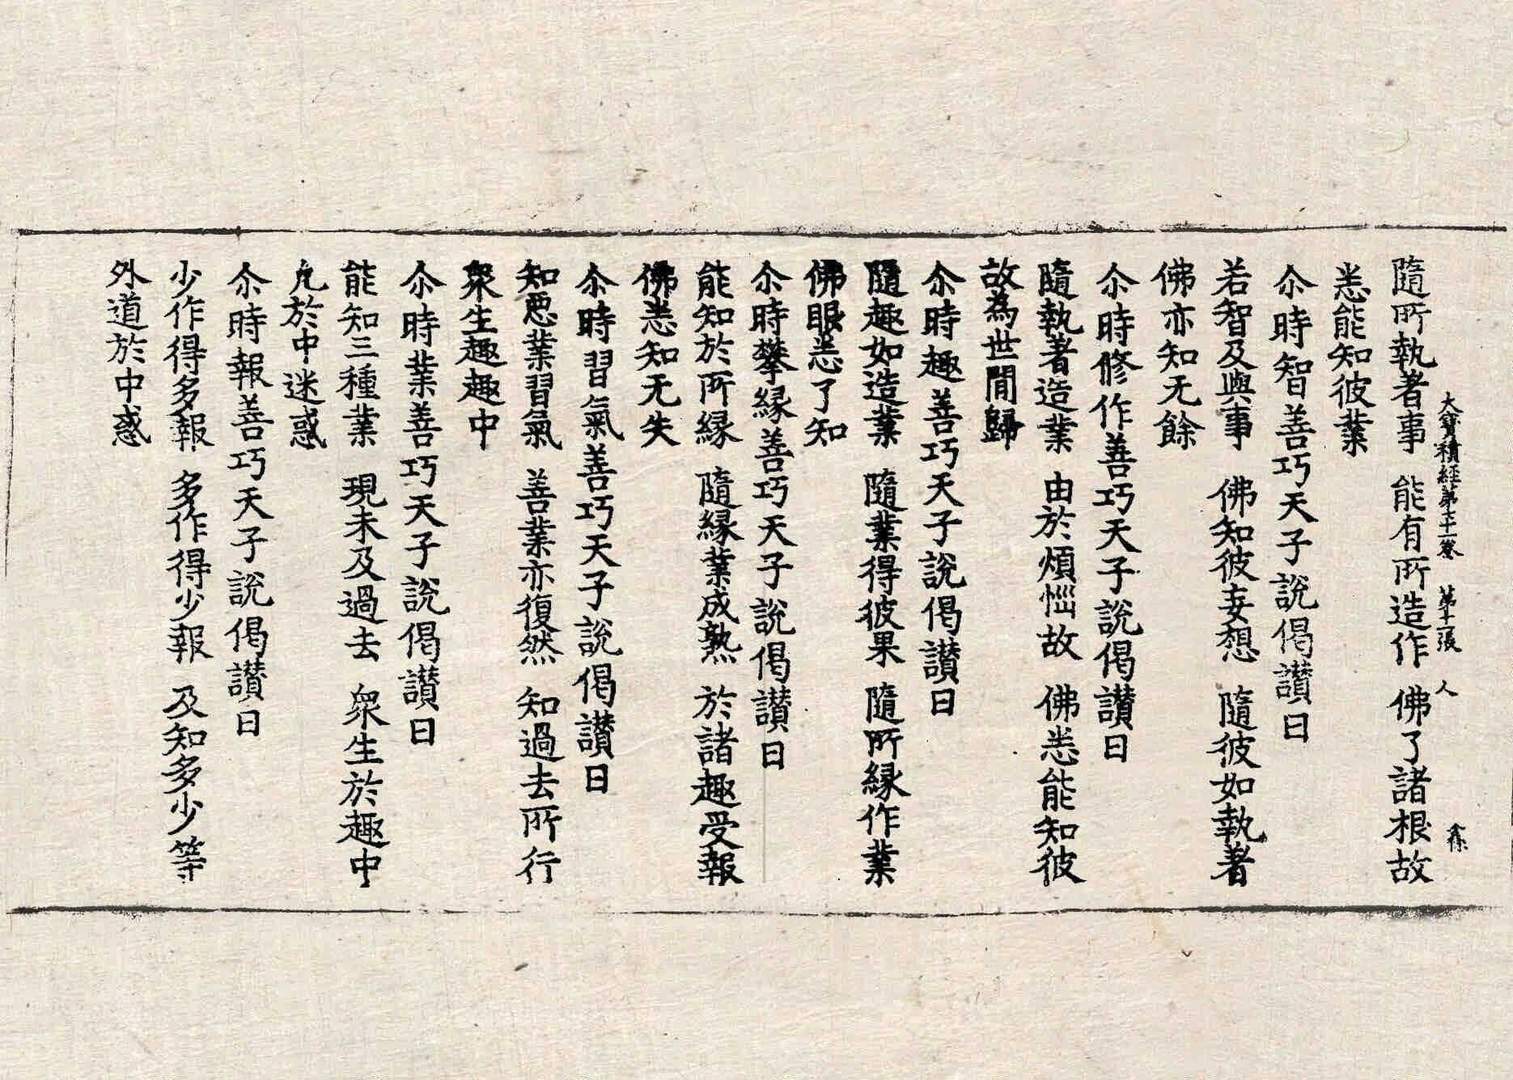 大寶積經第六十一卷 第十一張 人
隨所執著事 能有所造作 佛了諸根故
悉能知彼業
尒時智善巧天子說偈讃曰
若智及與事 佛知彼妄想 隨彼如執著
佛亦知无餘
尒時修作善巧天子說偈讃曰
隨執著造業 由於煩惱故 佛悉能知彼
故為世間歸
尒時趣善巧天子說偈讃曰
隨趣如造業 隨業得彼果 隨所縁作業
佛眼悉了知
尒時攀縁善巧天子說偈讃曰
能知於所縁 隨縁業成熟 於諸趣受報
佛悉知无失
尒時習氣善巧天子說偈讃曰
知惡業習氣 善業亦復然 知過去所行
衆生趣趣中
尒時業善巧天子說偈讃曰
能知三種業 現未及過去 衆生於趣中
凢於中迷惑
尒時報善巧天子說偈讃曰
少作得多報 多作得少報 及知多少等
外道於中惑